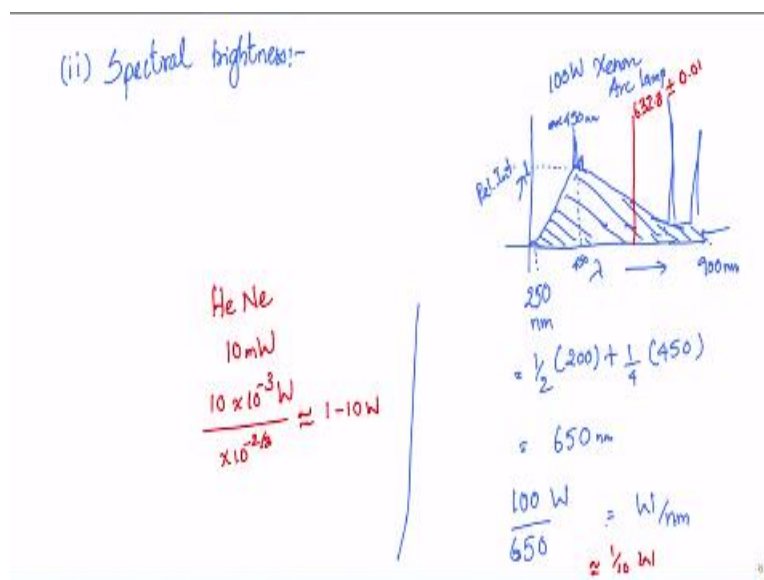 (ii) Spectral brightness:-
100W Xenon
Arc lamp
632.8 ± 0.01
450nm
Rel. Int.
450
λ →
900nm
250
nm
He Ne
10mW
10 x 10^-3 W
x10^-2/3
≃ 1-10W
= 1/2 (200) + 1/4 (450)
= 650 nm
100 W
650
= W/nm
≈ 1/10 W